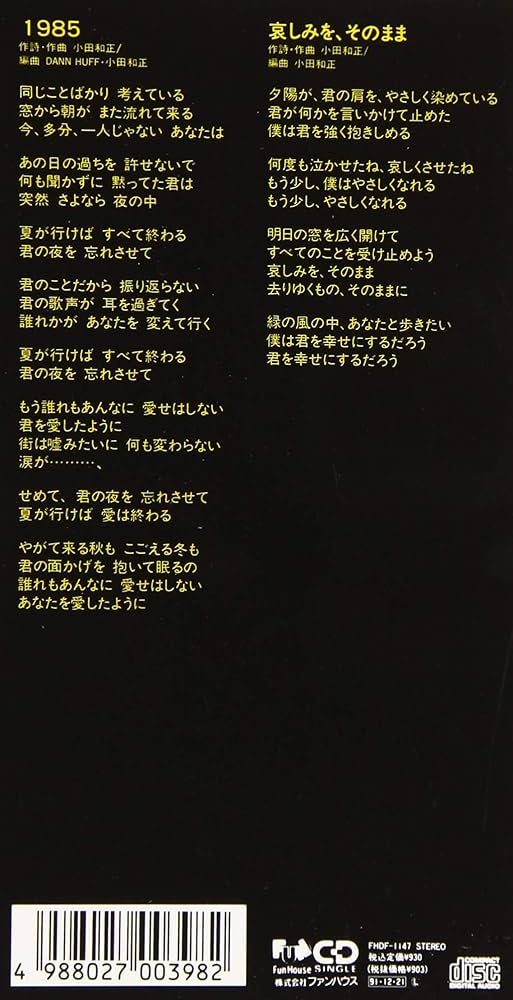 1985
作詩・作曲 小田和正/
編曲 DANN HUFF・小田和正
同じことばかり 考えている
窓から朝が また流れて来る
今、多分、一人じゃない あなたは
あの日の過ちを 許せないで
何も聞かずに 黙ってた君は
突然 さよなら 夜の中
夏が行けば すべて終わる
君の夜を 忘れさせて
君のことだから 振り返らない
君の歌声が 耳を過ぎてく
誰れかが あなたを 変えて行く
夏が行けば すべて終わる
君の夜を 忘れさせて
もう誰れもあんなに 愛せはしない
君を愛したように
街は嘘みたいに 何も変わらない
涙が………、
せめて、 君の夜を 忘れさせて
夏が行けば 愛は終わる
やがて来る秋も こごえる冬も
君の面かげを 抱いて眠るの
誰れもあんなに 愛せはしない
あなたを愛したように
哀しみを、そのまま
作詩・作曲 小田和正/
編曲 小田和正
夕陽が、君の肩を、やさしく染めている
君が何かを言いかけて止めた
僕は君を強く抱きしめる
何度も泣かせたね、哀しくさせたね
もう少し、僕はやさしくなれる
もう少し、やさしくなれる
明日の窓を広く開けて
すべてのことを受け止めよう
哀しみを、そのまま
去りゆくもの、そのままに
緑の風の中、あなたと歩きたい
僕は君を幸せにするだろう
君を幸せにするだろう
4 988027 003982
Fun House
CD SINGLE
株式会社ファンハウス
FHDF-1147 STEREO
税込定価¥930
(税抜価格¥903)
91・12・21 L
COMPACT disc DIGITAL AUDIO